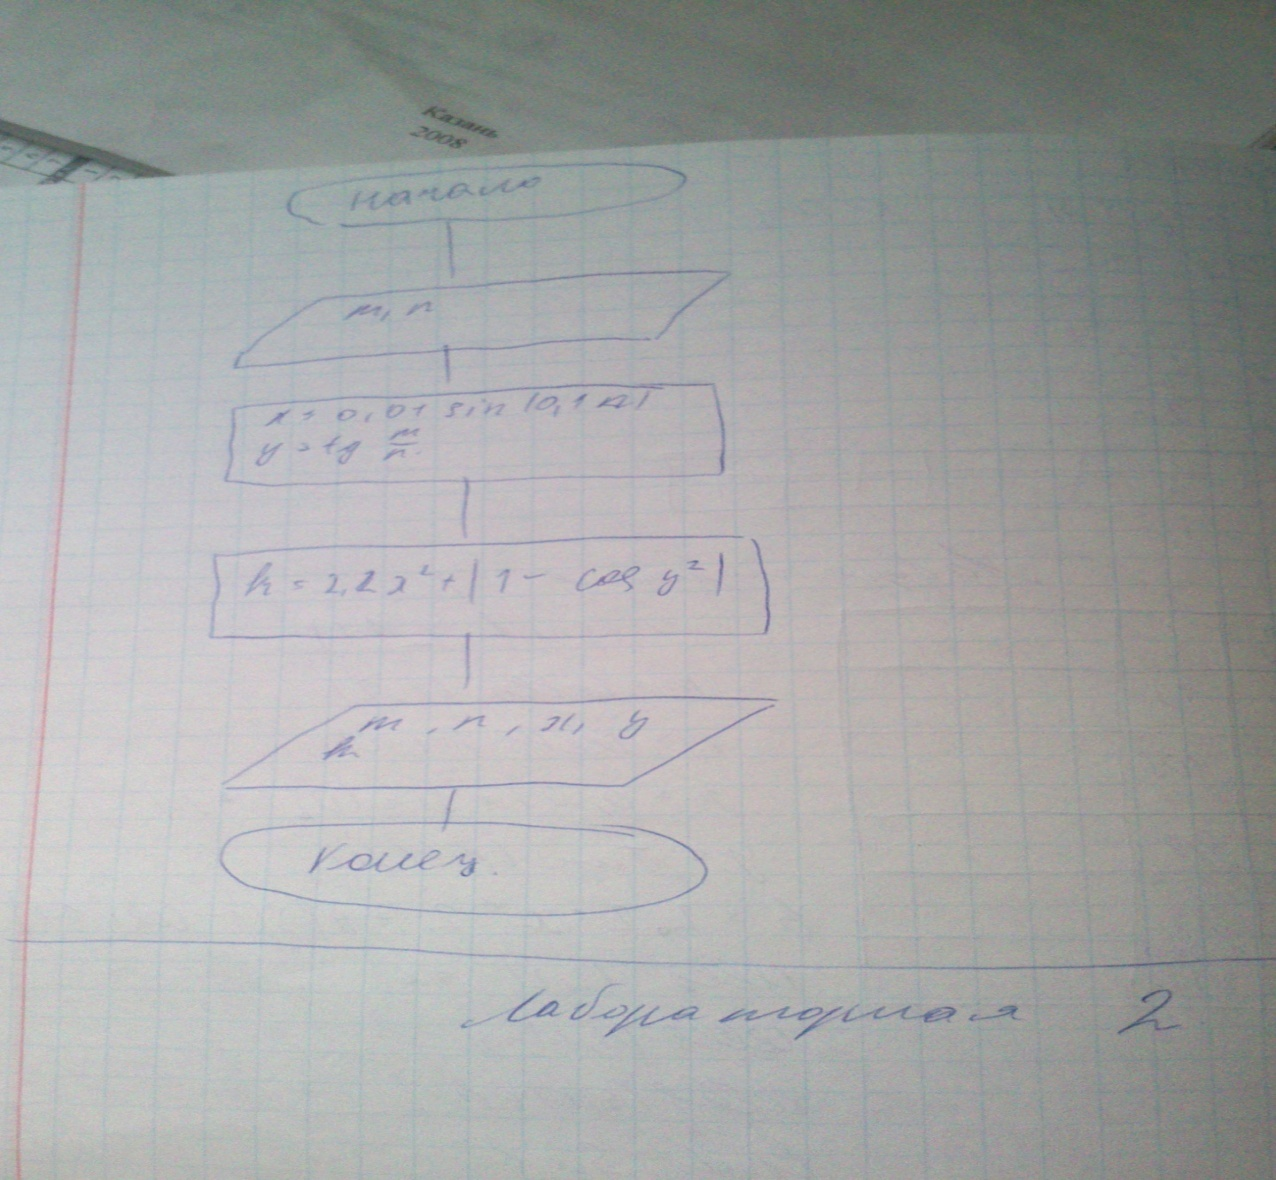 Казань
2008
начало
m, n
y = tg m/n
k = 2,2x² + | 1 - cos y² |
m, n, x, y
k
Конец.
Лабораторная 2